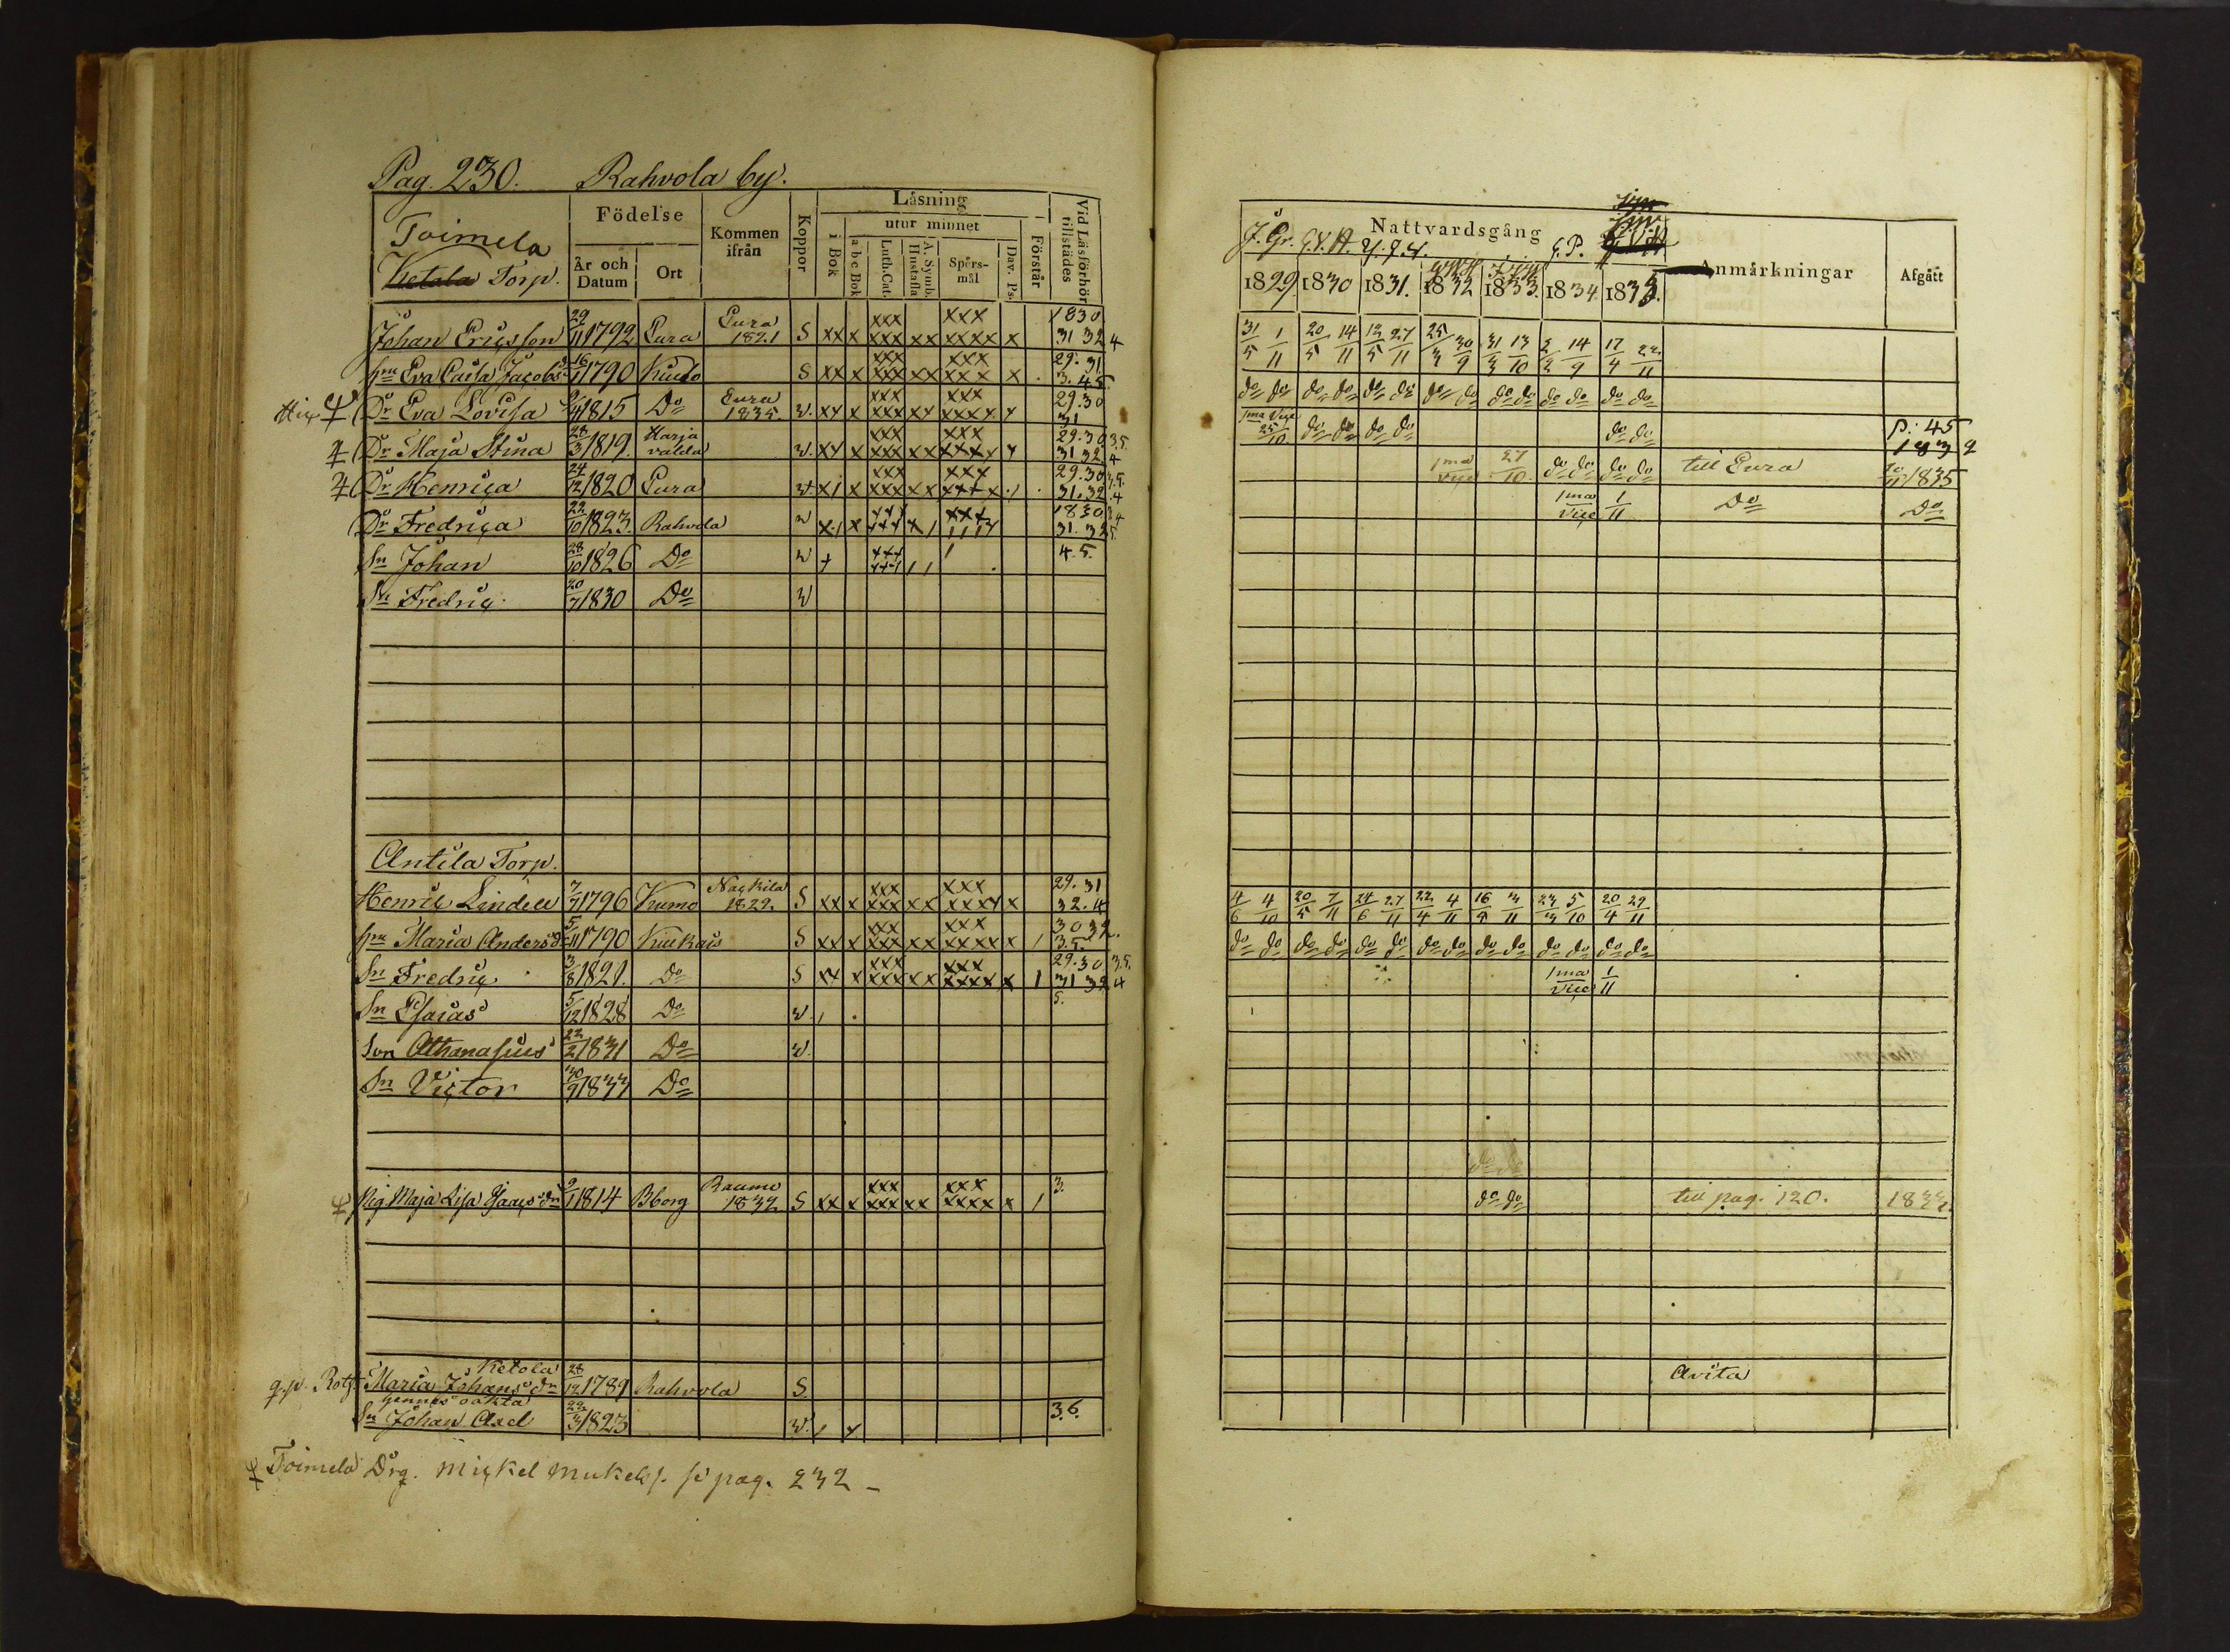 Pag. 230. Rahvola by.
Toimela
Ketala Torp.
Födelse
År och Datum
Ort
Kommen ifrån
Koppor
Läsning
i Bok
utur minnet
a b c Bok
Luth. Cat.
A. Symb. Hustafla
Spörs-mål
Dav. Ps.
Förstår
Vid Läsförhör tillstädes
Johan Ericsson 29/11 1792 Eura Eura 1821 S xx x xxx xxx xx xxx xxxx x 1830 31 32 4
hu Eva Caisa Jacobsdr 16/1 1790 Kiudo S xx x xxx xxx xx xxx xxx x 29. 31 3. 4 5.
Dr Eva Lovisa 1815 Do Eura 1835. w. xx x xxx xxx xx xxx xxxx 29. 30 31
Dr Maja Stina 28/3 1819. Harjavalda w. xx x xxx xxx xx xxx xxxx 29. 30 3.5. 31 32 4
Dr Henrica 24/12 1820 Eura w. x 1 x xxx xxx xx xxx 29. 30 3.5. 31. 32. 4
Dr Fredrica 22/10 1823. Rahvola w x 1 x xxx xxx x 1 xxx 1830 3 4 31. 32 5.
Sn Johan 28/10 1826 Do w x 4. 5.
Sn Fredric 20/7 1830 Do w
Antila Torp.
Henric Lindell 7/7 1796 Kumo Nackila 1829. S xx x xxx xxx xx xxx xxxx x 29. 31 32. 4
hu Maria Andersd. 5/11 1790 Kiukais S xx x xxx xxx xx xxx xxxx x 1 30 32. 3. 5.
Sn Fredric 3/8 1821. Do S xx x xxx xxx xx xxx xxxx x 1 29. 30 3.5. 31 32 4 5.
Sn Esaias 5/12 1828 Do w.
Son Athanasius 22/2 1831 Do w.
Sn Victor 30/9 1833 Do
Pig Maja Lisa Isacsdr 1814 Bborg Raumo 1832 S xx x xxx xxx xx xxx xxxx x 1 3.
Ketola
q.p. Rotf. Maria Johansdr 28/12 1789 Rahvola S.
hennes oäkta
Sn Johan Axel 22/3 1823 w. 3.6.
Toimela Drg. Mickel Mickels. se pag. 232
Nattvardsgång
1829. 1830 1831. 1832 1833. 1834. 1835.
Anmärkningar
Afgått
31/5 1/11 20/5 14/11 12/5 27/11 25/3 30/9 31/3 13/10 2/2 14/9 17/4 22/11
do do do do do do do do do do do do do do
1ma Vice 25/10 do do do do do do p: 45 1832
1ma Vice 27/10 do do do do till Eura 1835
1ma Vice 1/11 Do Do
4/6 4/10 20/5 7/11 24/6 27/11 22/4 4/11 16/4 3/11 23/3 5/10 20/4 29/11
do do do do do do do do do do do do do do
1ma Vice 1/11
do do
do do till pag. 120. 1833.
Avita